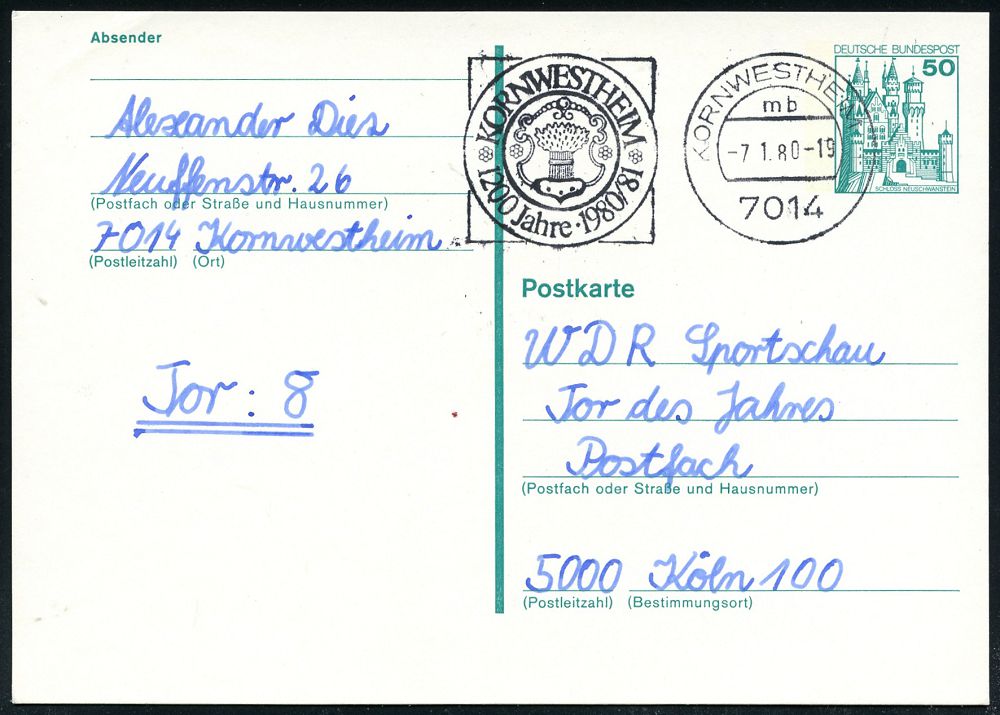 Absender
Alexander Dies
Neuffenstr. 26
(Postfach oder Straße und Hausnummer)
7014 Kornwestheim
(Postleitzahl) (Ort)
Tor: 8
KORNWESTHEIM
1200 Jahre · 1980/81
KORNWESTHEIM
mb
-7.1.80-19
7014
DEUTSCHE BUNDESPOST
50
SCHLOSS NEUSCHWANSTEIN
Postkarte
WDR Sportschau
Tor des Jahres
Postfach
(Postfach oder Straße und Hausnummer)
5000 Köln 100
(Postleitzahl) (Bestimmungsort)